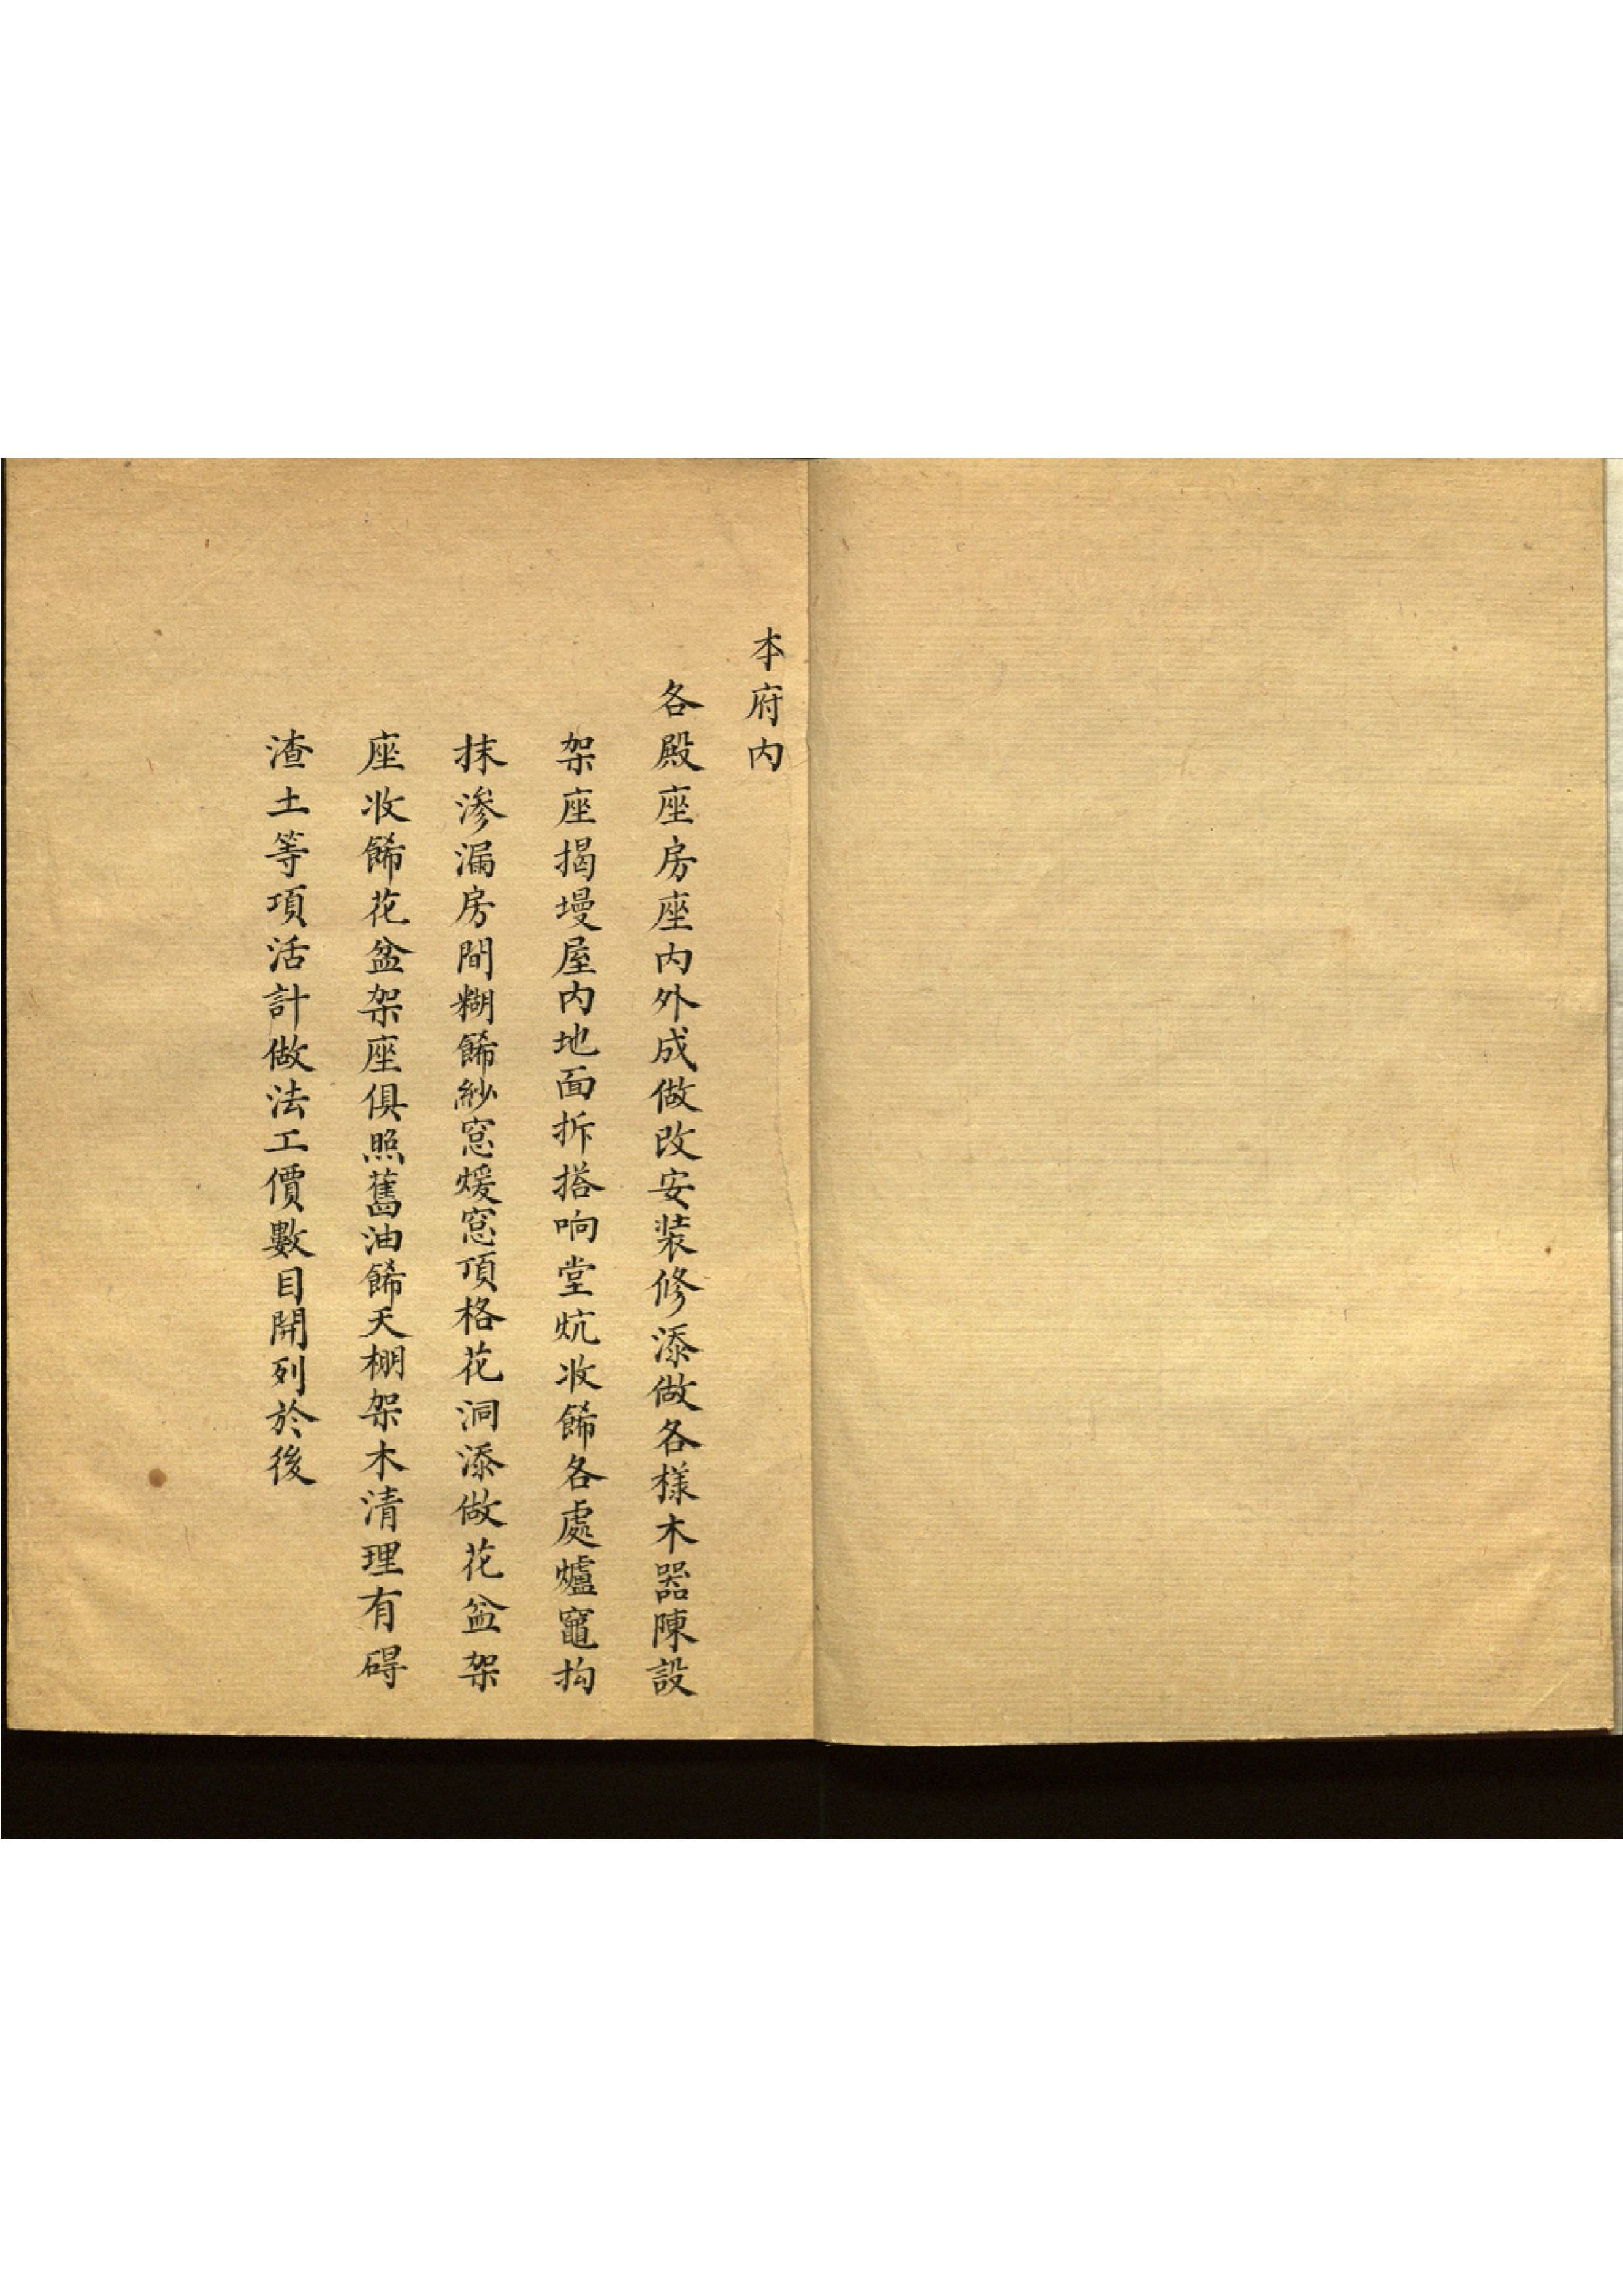 本府内
各殿座房座内外成做改安装修添做各樣木器陳設
架座揭墁屋内地面拆搭响堂炕收餙各處爐竈抅
抹滲漏房間糊餙紗窓煖窓頂格花洞添做花盆架
座收餙花盆架座俱照舊油餙天棚架木清理有碍
渣土等項活計做法工價數目開列於後